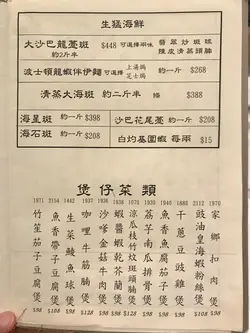 生猛海鮮
大沙巴龍躉斑 約2斤半 $448 可選擇兩味 翡翠炒斑球 陳皮清蒸頭腩
波士頓龍蝦伴伊麵 可選擇 上湯焗 芝士焗 約一斤 $268
清蒸大海斑 約二斤半 條 $388
海星斑 約一斤 $398 沙巴花尾躉 約一斤 $208
海石斑 約一斤 $208 白灼基圍蝦 每兩 $15
煲仔菜類
1970 家鄉扣肉煲 $98
2112 豉油皇海蝦粉絲煲
1886 干蔥豆豉雞煲 $98
1890 荔芋南瓜排骨煲 $98
1070 涼瓜枝竹炆斑頭腩煲 $128
1938 蝦醬蝦乾芥蘭煲 $98
1936 沙嗲金菇牛肉煲 $98
1937 咖哩牛筋腩煲 $128
1442 生菜鯪魚球煲 $98
2154 魚香帶子豆腐煲
1971 竹笙茄子豆腐煲 $108